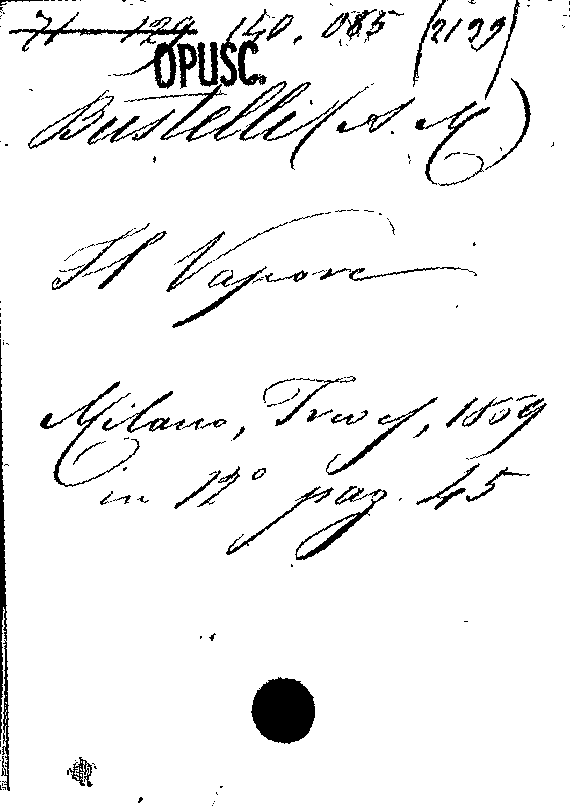 71 129 140. 085 (2199)
OPUSC.
Bustelli (A. M)
Il Vapore
Milano, Treves, 1869
in 12° pag. 45